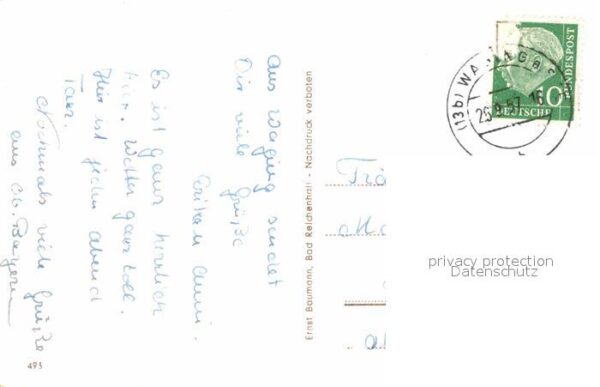 Aus Waging sendet
Dir viele Grüße
Es ist ganz herrlich
hier. Wetter ganz toll.
Hier ist jeden Abend
Tanz.
Nochmals viele Grüße
aus
Ernst Baumann, Bad Reichenhall - Nachdruck verboten
493
(13b) WAGING a.
10
DEUTSCHE
BUNDESPOST
privacy protection
Datenschutz